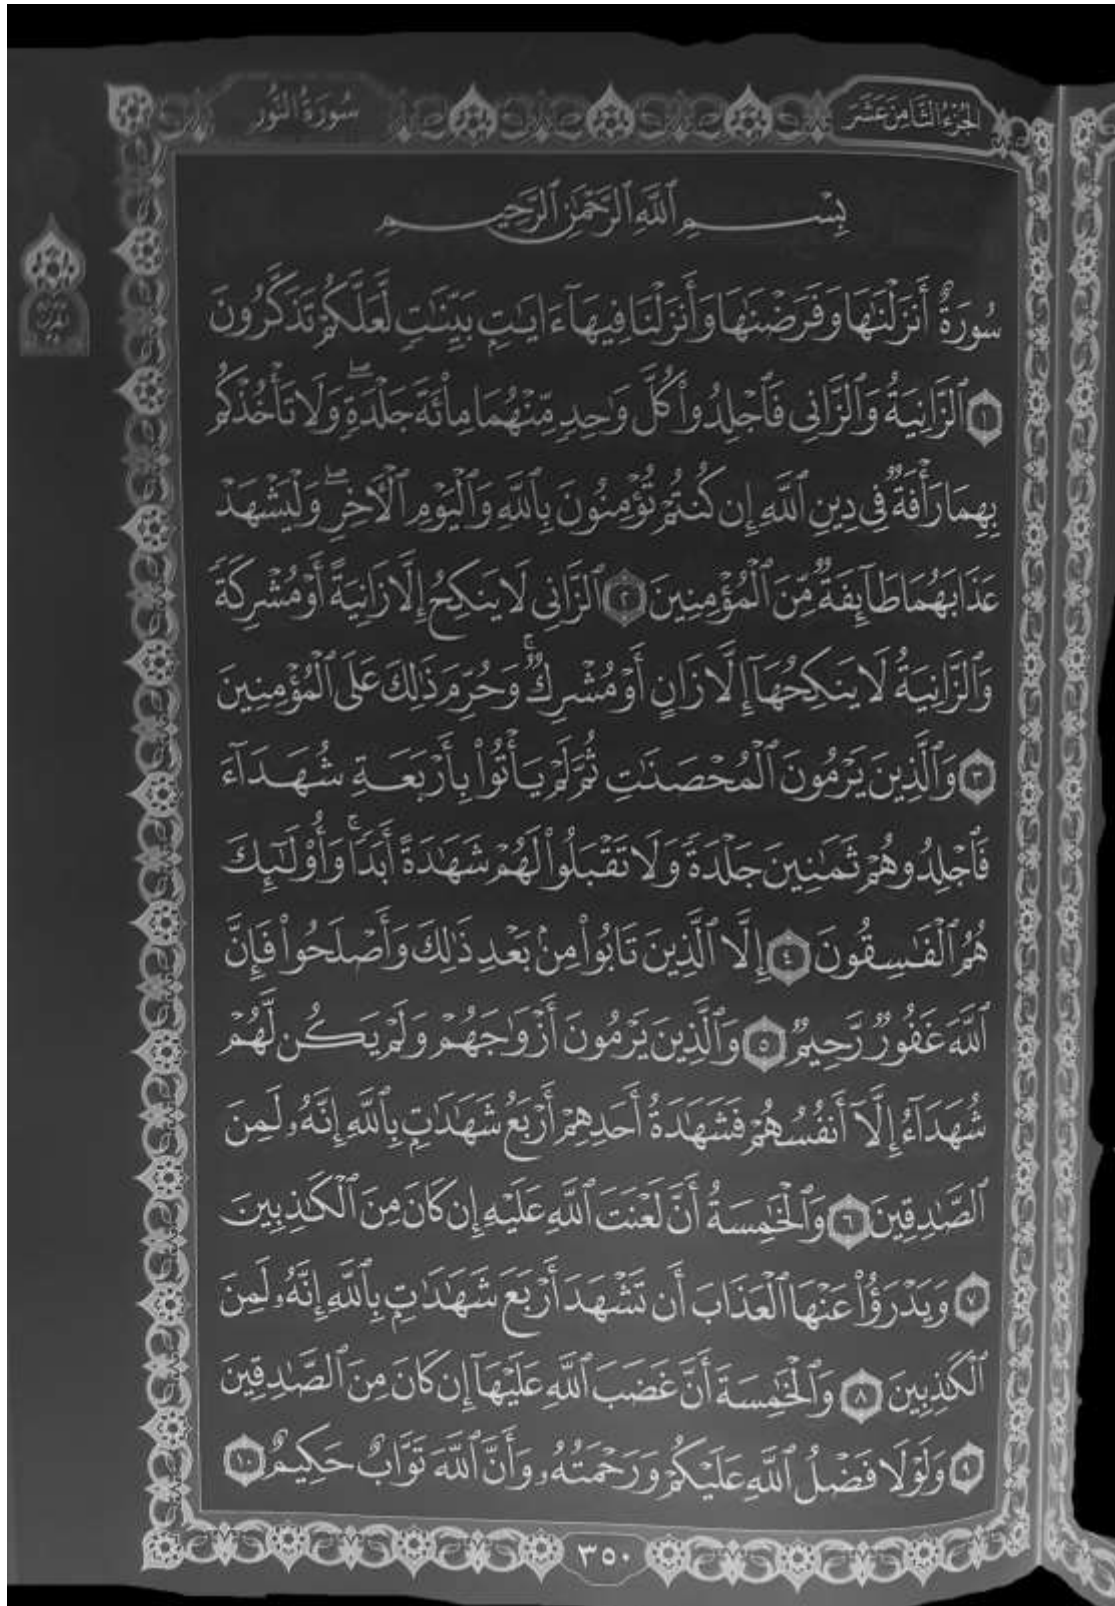 الجزء الثامن عشر
سورة النور
بِسْمِ ٱللَّهِ ٱلرَّحْمَٰنِ ٱلرَّحِيمِ
سُورَةٌ أَنزَلْنَٰهَا وَفَرَضْنَٰهَا وَأَنزَلْنَا فِيهَآ ءَايَٰتٍۭ بَيِّنَٰتٍ لَّعَلَّكُمْ تَذَكَّرُونَ
١ ٱلزَّانِيَةُ وَٱلزَّانِى فَٱجْلِدُوا۟ كُلَّ وَٰحِدٍ مِّنْهُمَا مِا۟ئَةَ جَلْدَةٍ ۖ وَلَا تَأْخُذْكُم
بِهِمَا رَأْفَةٌ فِى دِينِ ٱللَّهِ إِن كُنتُمْ تُؤْمِنُونَ بِٱللَّهِ وَٱلْيَوْمِ ٱلْءَاخِرِ ۖ وَلْيَشْهَدْ
عَذَابَهُمَا طَآئِفَةٌ مِّنَ ٱلْمُؤْمِنِينَ ٢ ٱلزَّانِى لَا يَنكِحُ إِلَّا زَانِيَةً أَوْ مُشْرِكَةً
وَٱلزَّانِيَةُ لَا يَنكِحُهَآ إِلَّا زَانٍ أَوْ مُشْرِكٌ ۚ وَحُرِّمَ ذَٰلِكَ عَلَى ٱلْمُؤْمِنِينَ
٣ وَٱلَّذِينَ يَرْمُونَ ٱلْمُحْصَنَٰتِ ثُمَّ لَمْ يَأْتُوا۟ بِأَرْبَعَةِ شُهَدَآءَ
فَٱجْلِدُوهُمْ ثَمَٰنِينَ جَلْدَةً وَلَا تَقْبَلُوا۟ لَهُمْ شَهَٰدَةً أَبَدًا ۚ وَأُو۟لَٰٓئِكَ
هُمُ ٱلْفَٰسِقُونَ ٤ إِلَّا ٱلَّذِينَ تَابُوا۟ مِنۢ بَعْدِ ذَٰلِكَ وَأَصْلَحُوا۟ فَإِنَّ
ٱللَّهَ غَفُورٌ رَّحِيمٌ ٥ وَٱلَّذِينَ يَرْمُونَ أَزْوَٰجَهُمْ وَلَمْ يَكُن لَّهُمْ
شُهَدَآءُ إِلَّآ أَنفُسُهُمْ فَشَهَٰدَةُ أَحَدِهِمْ أَرْبَعُ شَهَٰدَٰتٍۭ بِٱللَّهِ إِنَّهُۥ لَمِنَ
ٱلصَّٰدِقِينَ ٦ وَٱلْخَٰمِسَةُ أَنَّ لَعْنَتَ ٱللَّهِ عَلَيْهِ إِن كَانَ مِنَ ٱلْكَٰذِبِينَ
٧ وَيَدْرَؤُا۟ عَنْهَا ٱلْعَذَابَ أَن تَشْهَدَ أَرْبَعَ شَهَٰدَٰتٍۭ بِٱللَّهِ إِنَّهُۥ لَمِنَ
ٱلْكَٰذِبِينَ ٨ وَٱلْخَٰمِسَةَ أَنَّ غَضَبَ ٱللَّهِ عَلَيْهَآ إِن كَانَ مِنَ ٱلصَّٰدِقِينَ
٩ وَلَوْلَا فَضْلُ ٱللَّهِ عَلَيْكُمْ وَرَحْمَتُهُۥ وَأَنَّ ٱللَّهَ تَوَّابٌ حَكِيمٌ ١٠
٣٥٠